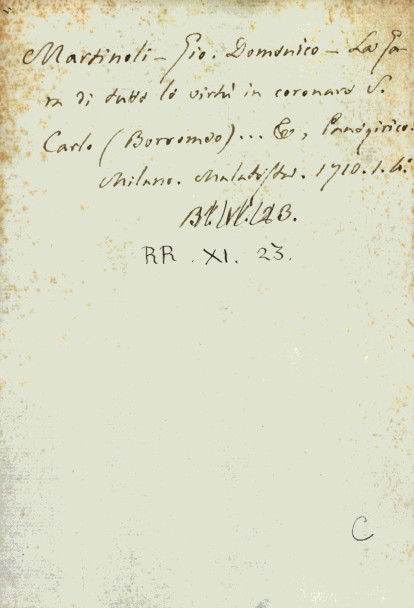 Martinoli - Gio. Domenico - La Ga-
ra di tutte le virtù in coronare S.
Carlo (Borromeo)... &, Panegirico.
Milano. Malatesta. 1710. 1. 4:
RR. XI. 23.
C